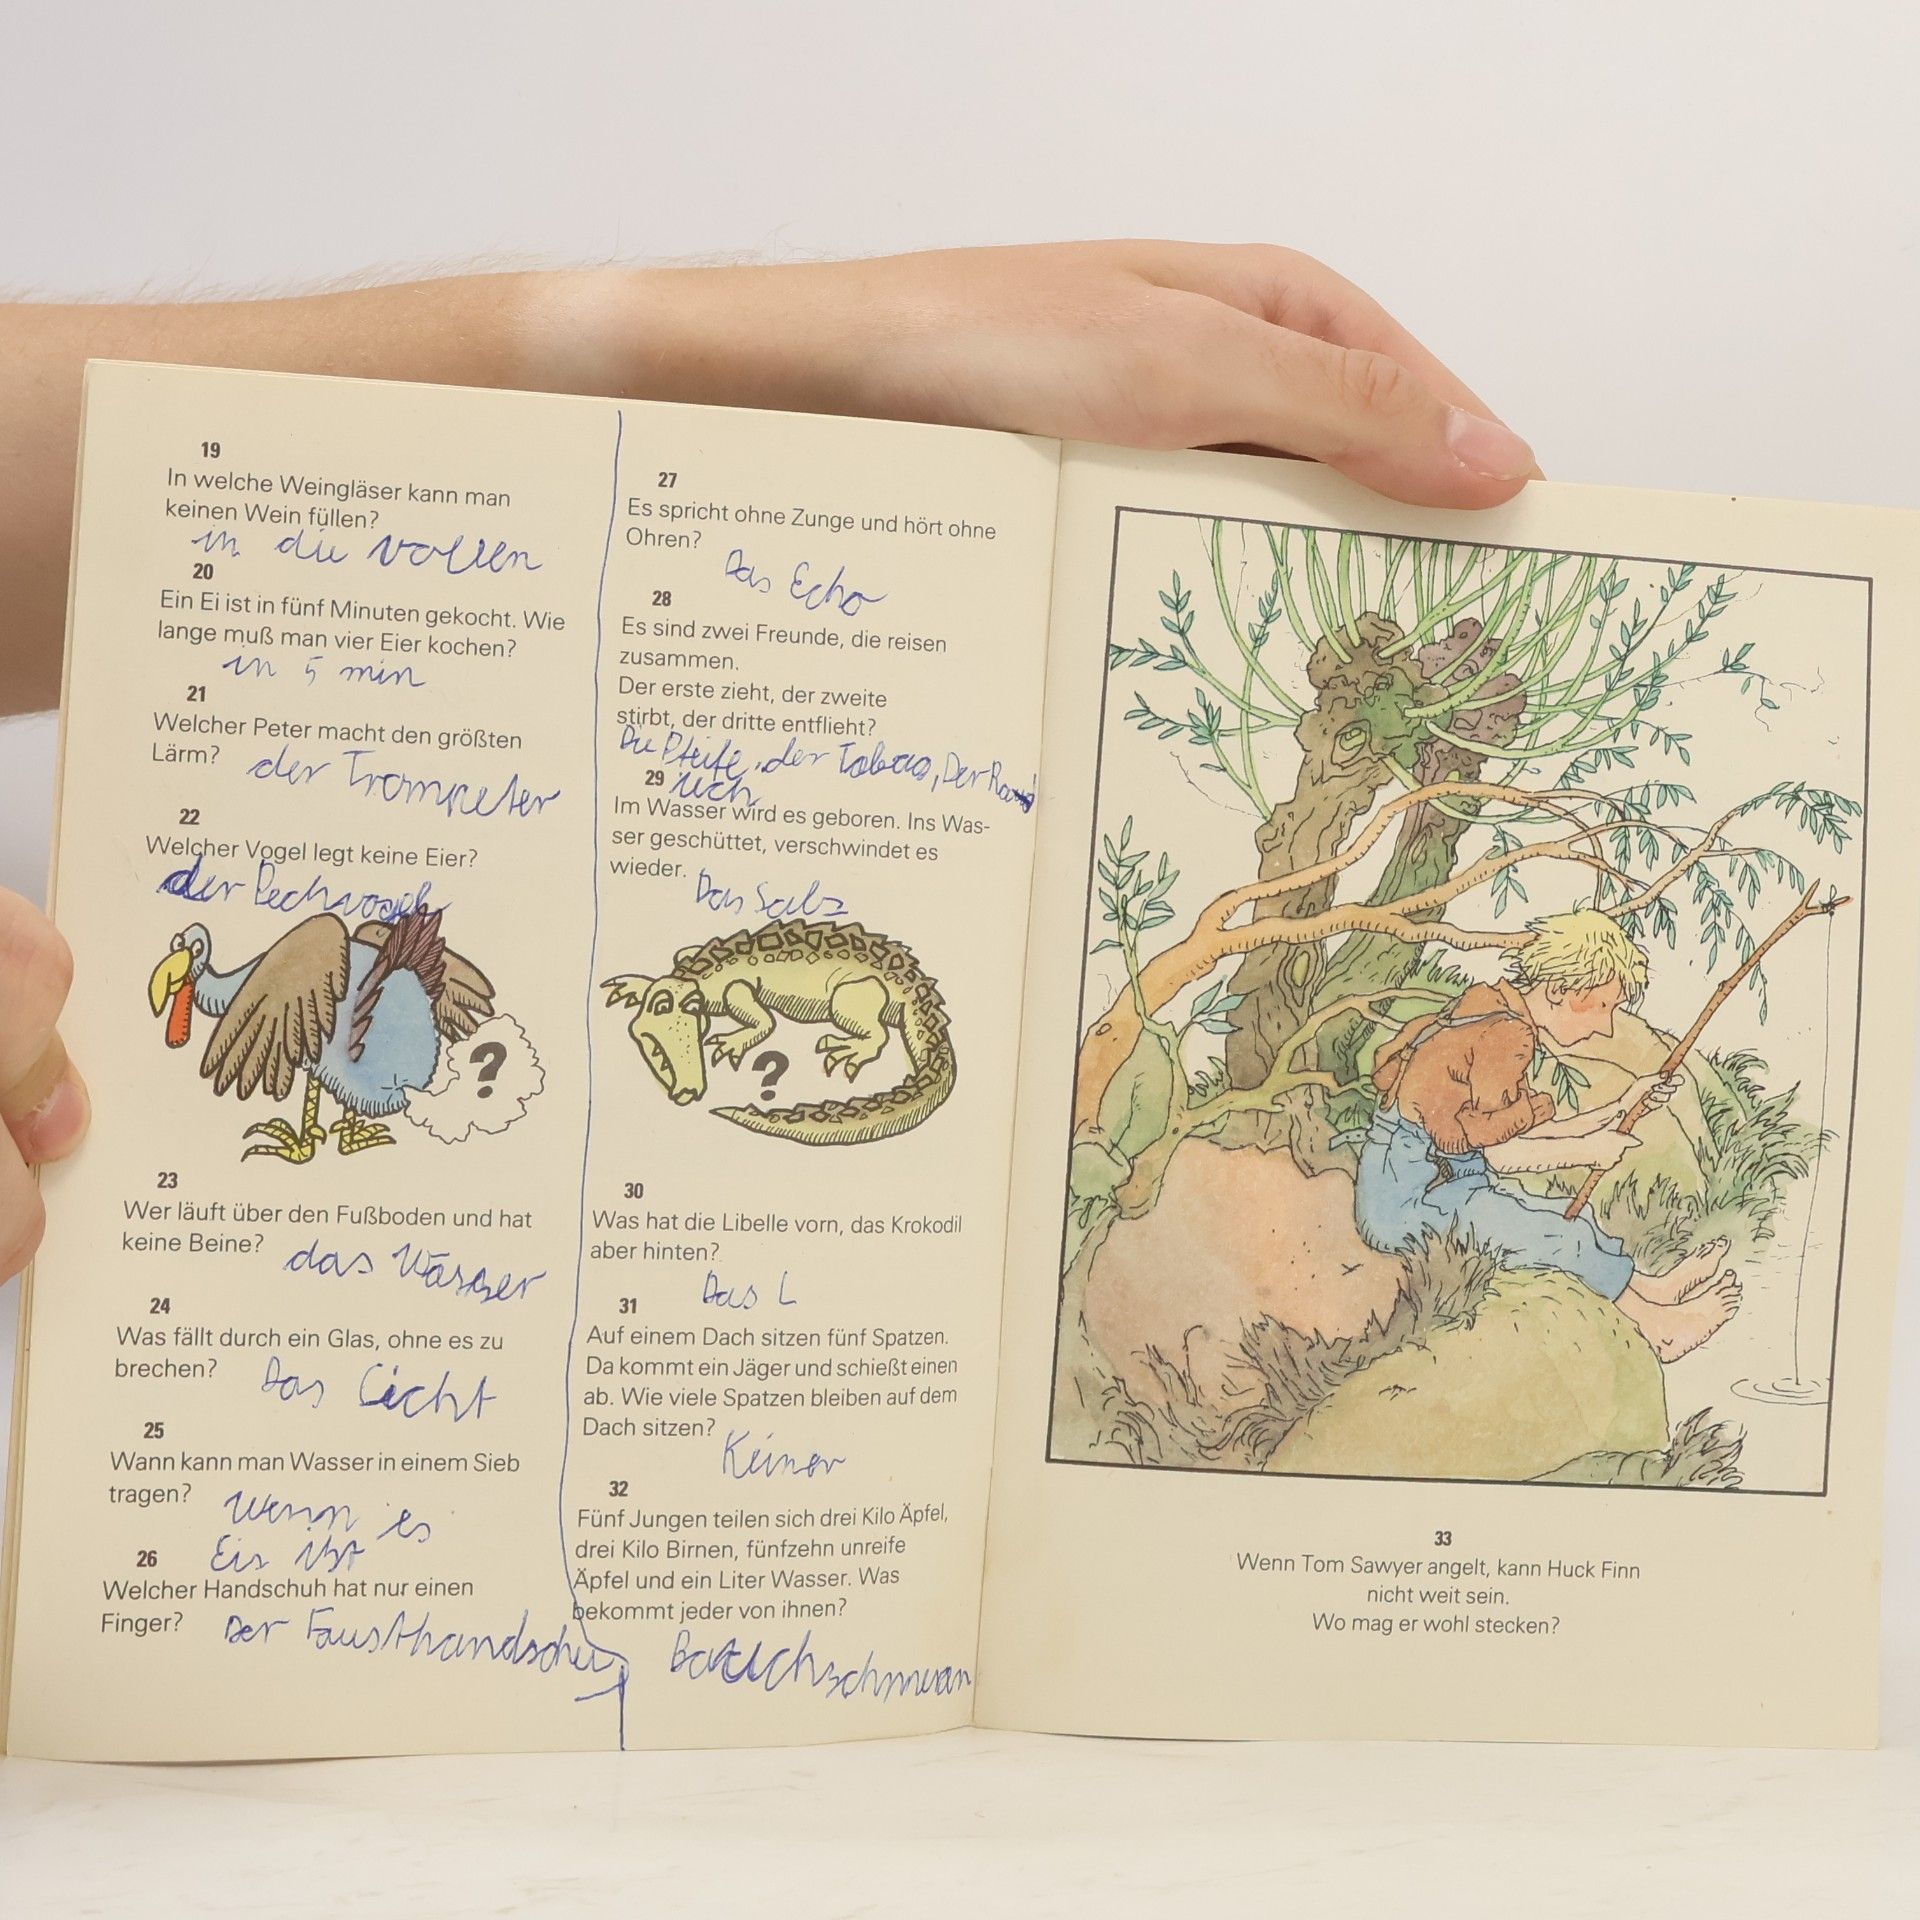 19
In welche Weingläser kann man
keinen Wein füllen?
in die vollen
20
Ein Ei ist in fünf Minuten gekocht. Wie
lange muß man vier Eier kochen?
in 5 min
21
Welcher Peter macht den größten
Lärm? der Trompeter
22
Welcher Vogel legt keine Eier?
der Pechvogel
?
23
Wer läuft über den Fußboden und hat
keine Beine? das Wasser
24
Was fällt durch ein Glas, ohne es zu
brechen? Das Licht
25
Wann kann man Wasser in einem Sieb
tragen? Wenn es
Eis ist
26
Welcher Handschuh hat nur einen
Finger? Der Fausthandschu
27
Es spricht ohne Zunge und hört ohne
Ohren? Das Echo
28
Es sind zwei Freunde, die reisen
zusammen.
Der erste zieht, der zweite
stirbt, der dritte entflieht?
Die Pfeife, der Tabac, Der Ra
uch
29
Im Wasser wird es geboren. Ins Was-
ser geschüttet, verschwindet es
wieder. Das Salz
?
30
Was hat die Libelle vorn, das Krokodil
aber hinten?
Das L
31
Auf einem Dach sitzen fünf Spatzen.
Da kommt ein Jäger und schießt einen
ab. Wie viele Spatzen bleiben auf dem
Dach sitzen?
Keiner
32
Fünf Jungen teilen sich drei Kilo Äpfel,
drei Kilo Birnen, fünfzehn unreife
Äpfel und ein Liter Wasser. Was
bekommt jeder von ihnen?
33
Wenn Tom Sawyer angelt, kann Huck Finn
nicht weit sein.
Wo mag er wohl stecken?